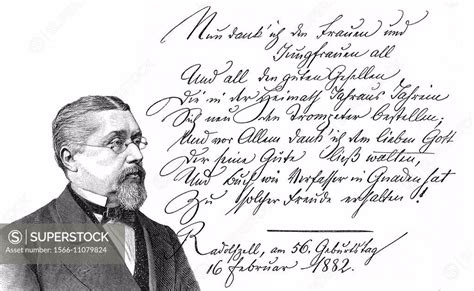 Nun dank' ich den Frauen und
Jungfrauen all
Und all den guten Gesellen
Die in der Heimath Jahraus Jahrein
Sich neu den Trompeter bestellen;
Und vor Allem dank' ich dem lieben Gott
Der seine Güte ließ walten,
Und Buch wie Verfasser in Gnaden hat
Zu solcher Freude erhalten!
Radolfzell, am 56. Geburtstag
16 Februar 1882.
SUPERSTOCK
1566-11079824